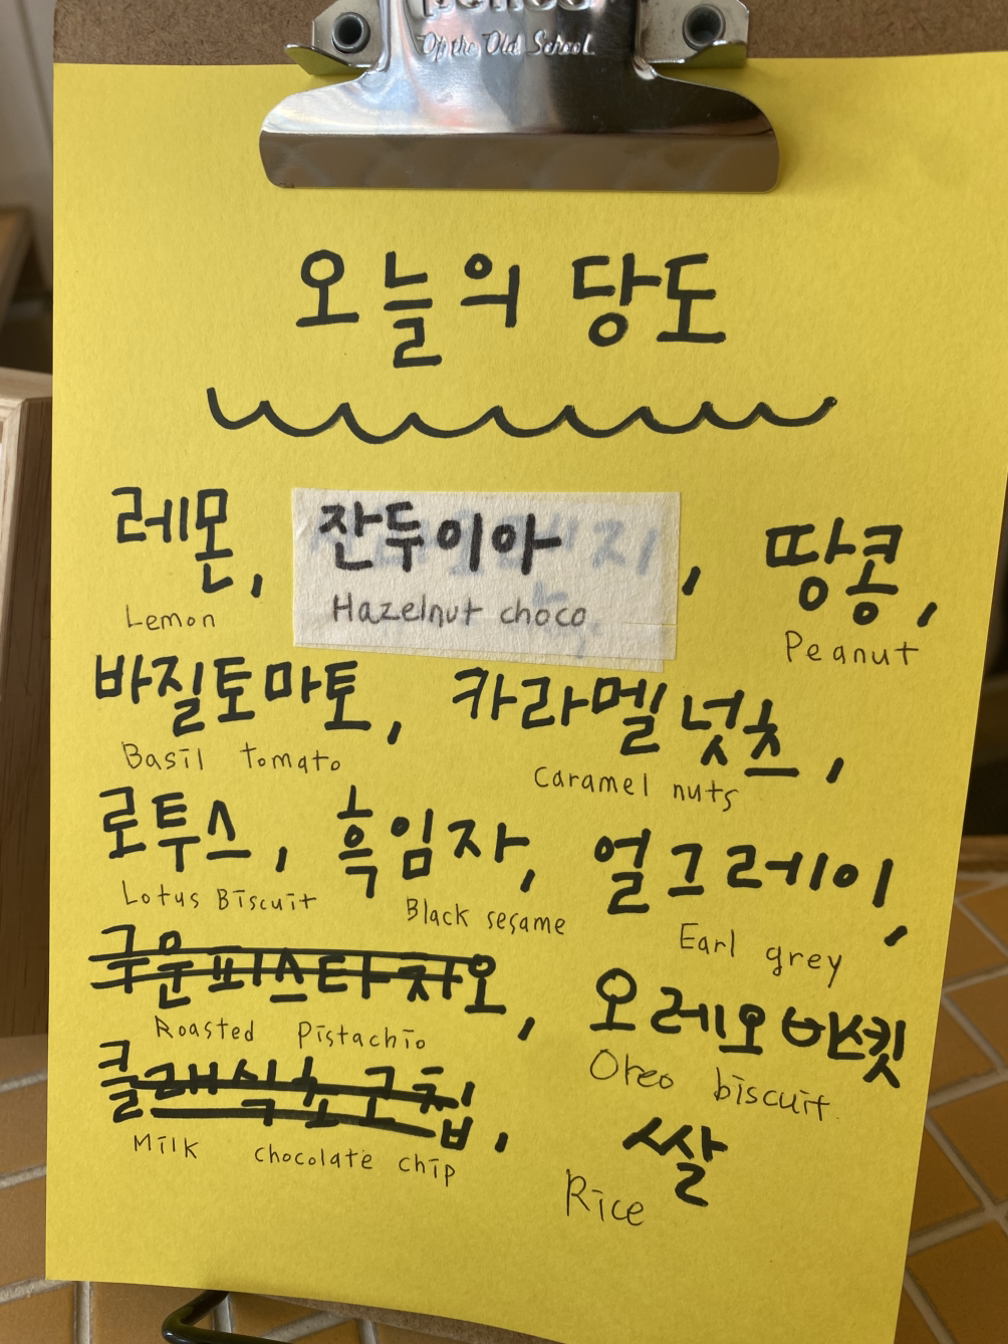 Of the Old School
오늘의 당도
레몬, 잔두이아, 땅콩,
Lemon Hazelnut choco Peanut
바질토마토, 카라멜넛츠,
Basil tomato Caramel nuts
로투스, 흑임자, 얼그레이,
Lotus Biscuit Black sesame Earl grey
구운피스타치오, 오레오비스킷
Roasted Pistachio Oreo biscuit
클래식초코칩, 쌀
Milk chocolate chip Rice